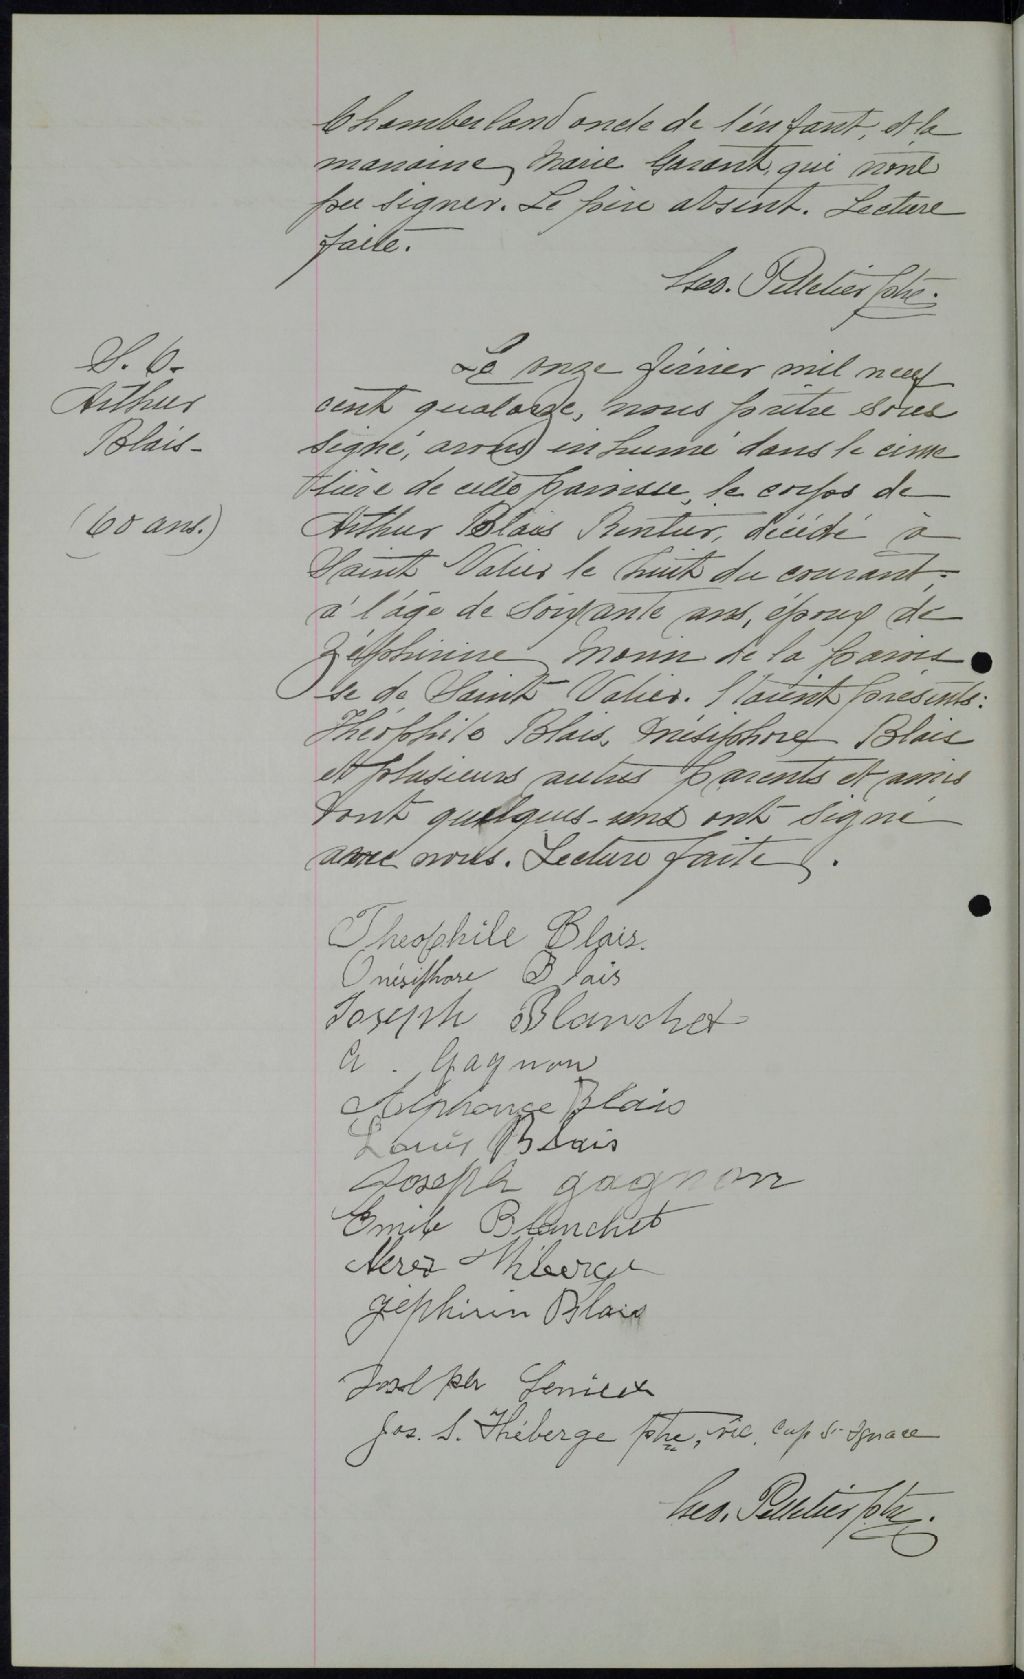 Chamberland oncle de l'enfant, et la
marraine, Marie Garant, qui n'ont
pu signer. Le père absent. Lecture
faite.
Geo. Pelletier ptre.
S. 6.
Arthur
Blais -
(60 ans.)
Le onze février mil neuf
cent quatorze, nous prêtre sous
signé, avons inhumé dans le cime
tière de cette paroisse, le corps de
Arthur Blais Rentier, décédé à
Saint Valier le huit du courant,
à l'âge de soixante ans, époux de
Zéphirine Morin de la parois
se de Saint Valier. Etaient présents:
Théophile Blais, Onésiphore Blais
et plusieurs autres parents et amis
dont quelques-uns ont signé
avec nous. Lecture faite.
Theophile Blais.
Onésiphore Blais
Joseph Blanchet
A. Gagnon
Alphonse Blais
Louis Blais
Joseph gagnon
Emile Blanchet
Nerée Théberge
Zéphirin Blais
Joseph Lemieux
Jos. S. Théberge ptre, vic. Cap St Ignace
Geo. Pelletier ptre.